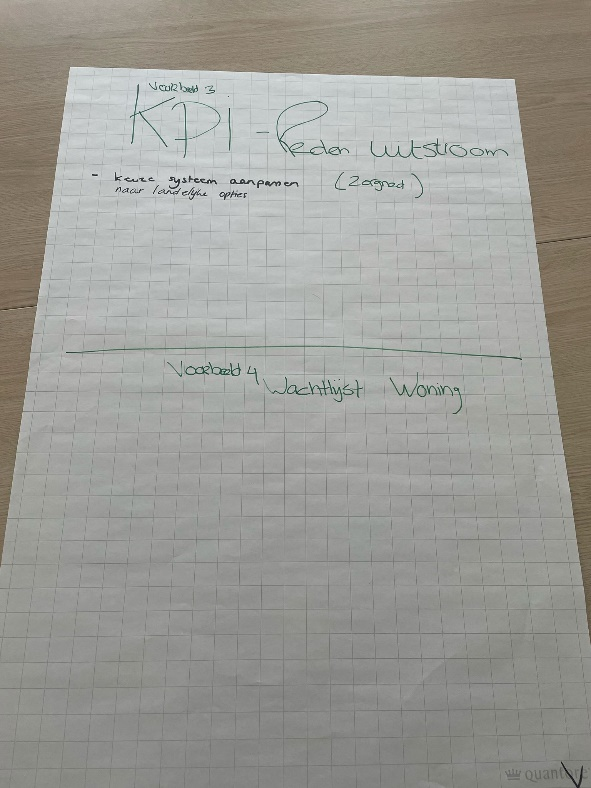 Voorbeeld 3
KPI - Reden uitstroom
- keuze systeem aanpassen (Zorgned)
naar landelijke opties
Voorbeeld 4
Wachtlijst Woning
quantore